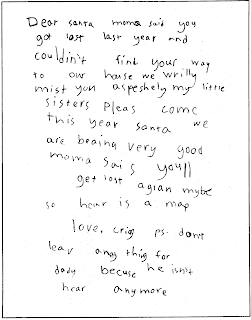 Dear santa moma said you
got lost last year and
couldin't find your way
to our house we wrilly
mist you aspeshely my little
sisters pleas come
this year santa we
are beaing very good
moma sais you'll
get lost agian mybe
so hear is a map
love, Cris ps. dont
leav any thing for
dady becuse he isn't
hear anymore